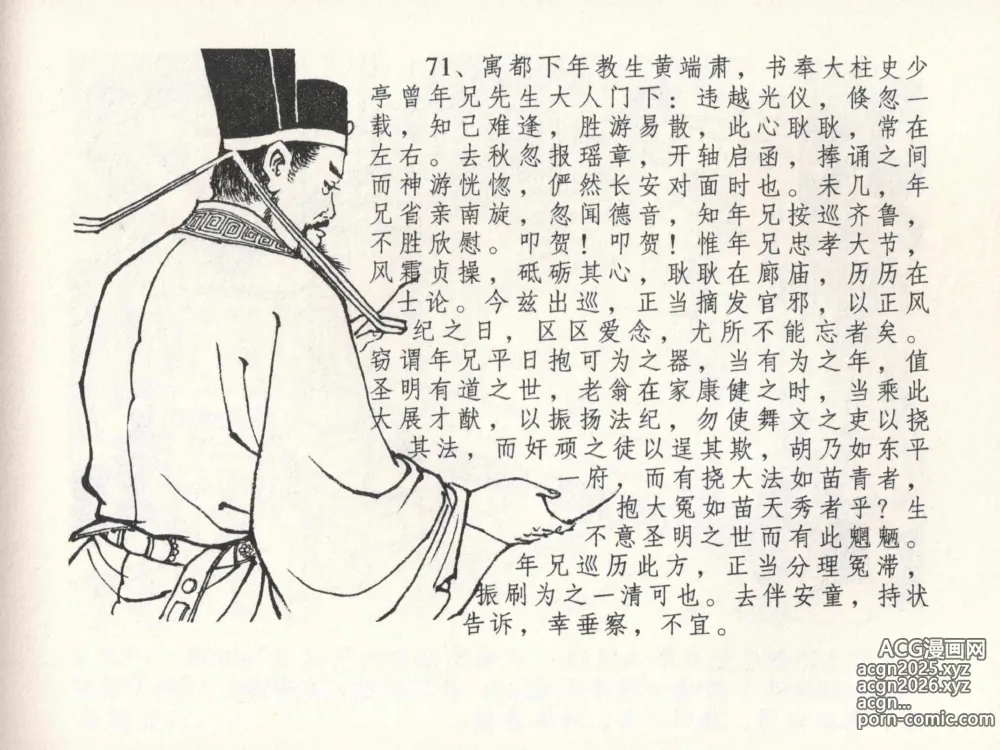 71、寓都下年教生黄端肃，书奉大柱史少
亭曾年兄先生大人门下：违越光仪，倏忽一
载，知己难逢，胜游易散，此心耿耿，常在
左右。去秋忽报瑶章，开轴启函，捧诵之间
而神游恍惚，俨然长安对面时也。未几，年
兄省亲南旋，忽闻德音，知年兄按巡齐鲁，
不胜欣慰。叩贺！叩贺！惟年兄忠孝大节，
风霜贞操，砥砺其心，耿耿在廊庙，历历在
士论。今兹出巡，正当摘发官邪，以正风
纪之日，区区爱念，尤所不能忘者矣。
窃谓年兄平日抱可为之器，当有为之年，值
圣明有道之世，老翁在家康健之时，当乘此
大展才猷，以振扬法纪，勿使舞文之吏以挠
其法，而奸顽之徒以逞其欺，胡乃如东平
一府，而有挠大法如苗青者，
抱大冤如苗天秀者乎？生
不意圣明之世而有此魍魉。
年兄巡历此方，正当分理冤滞，
振刷为之一清可也。去伴安童，持状
告诉，幸垂察，不宜。
ACG漫画网
acgn2025.xyz
acgn2026.xyz
acgn...
porn-comic.com